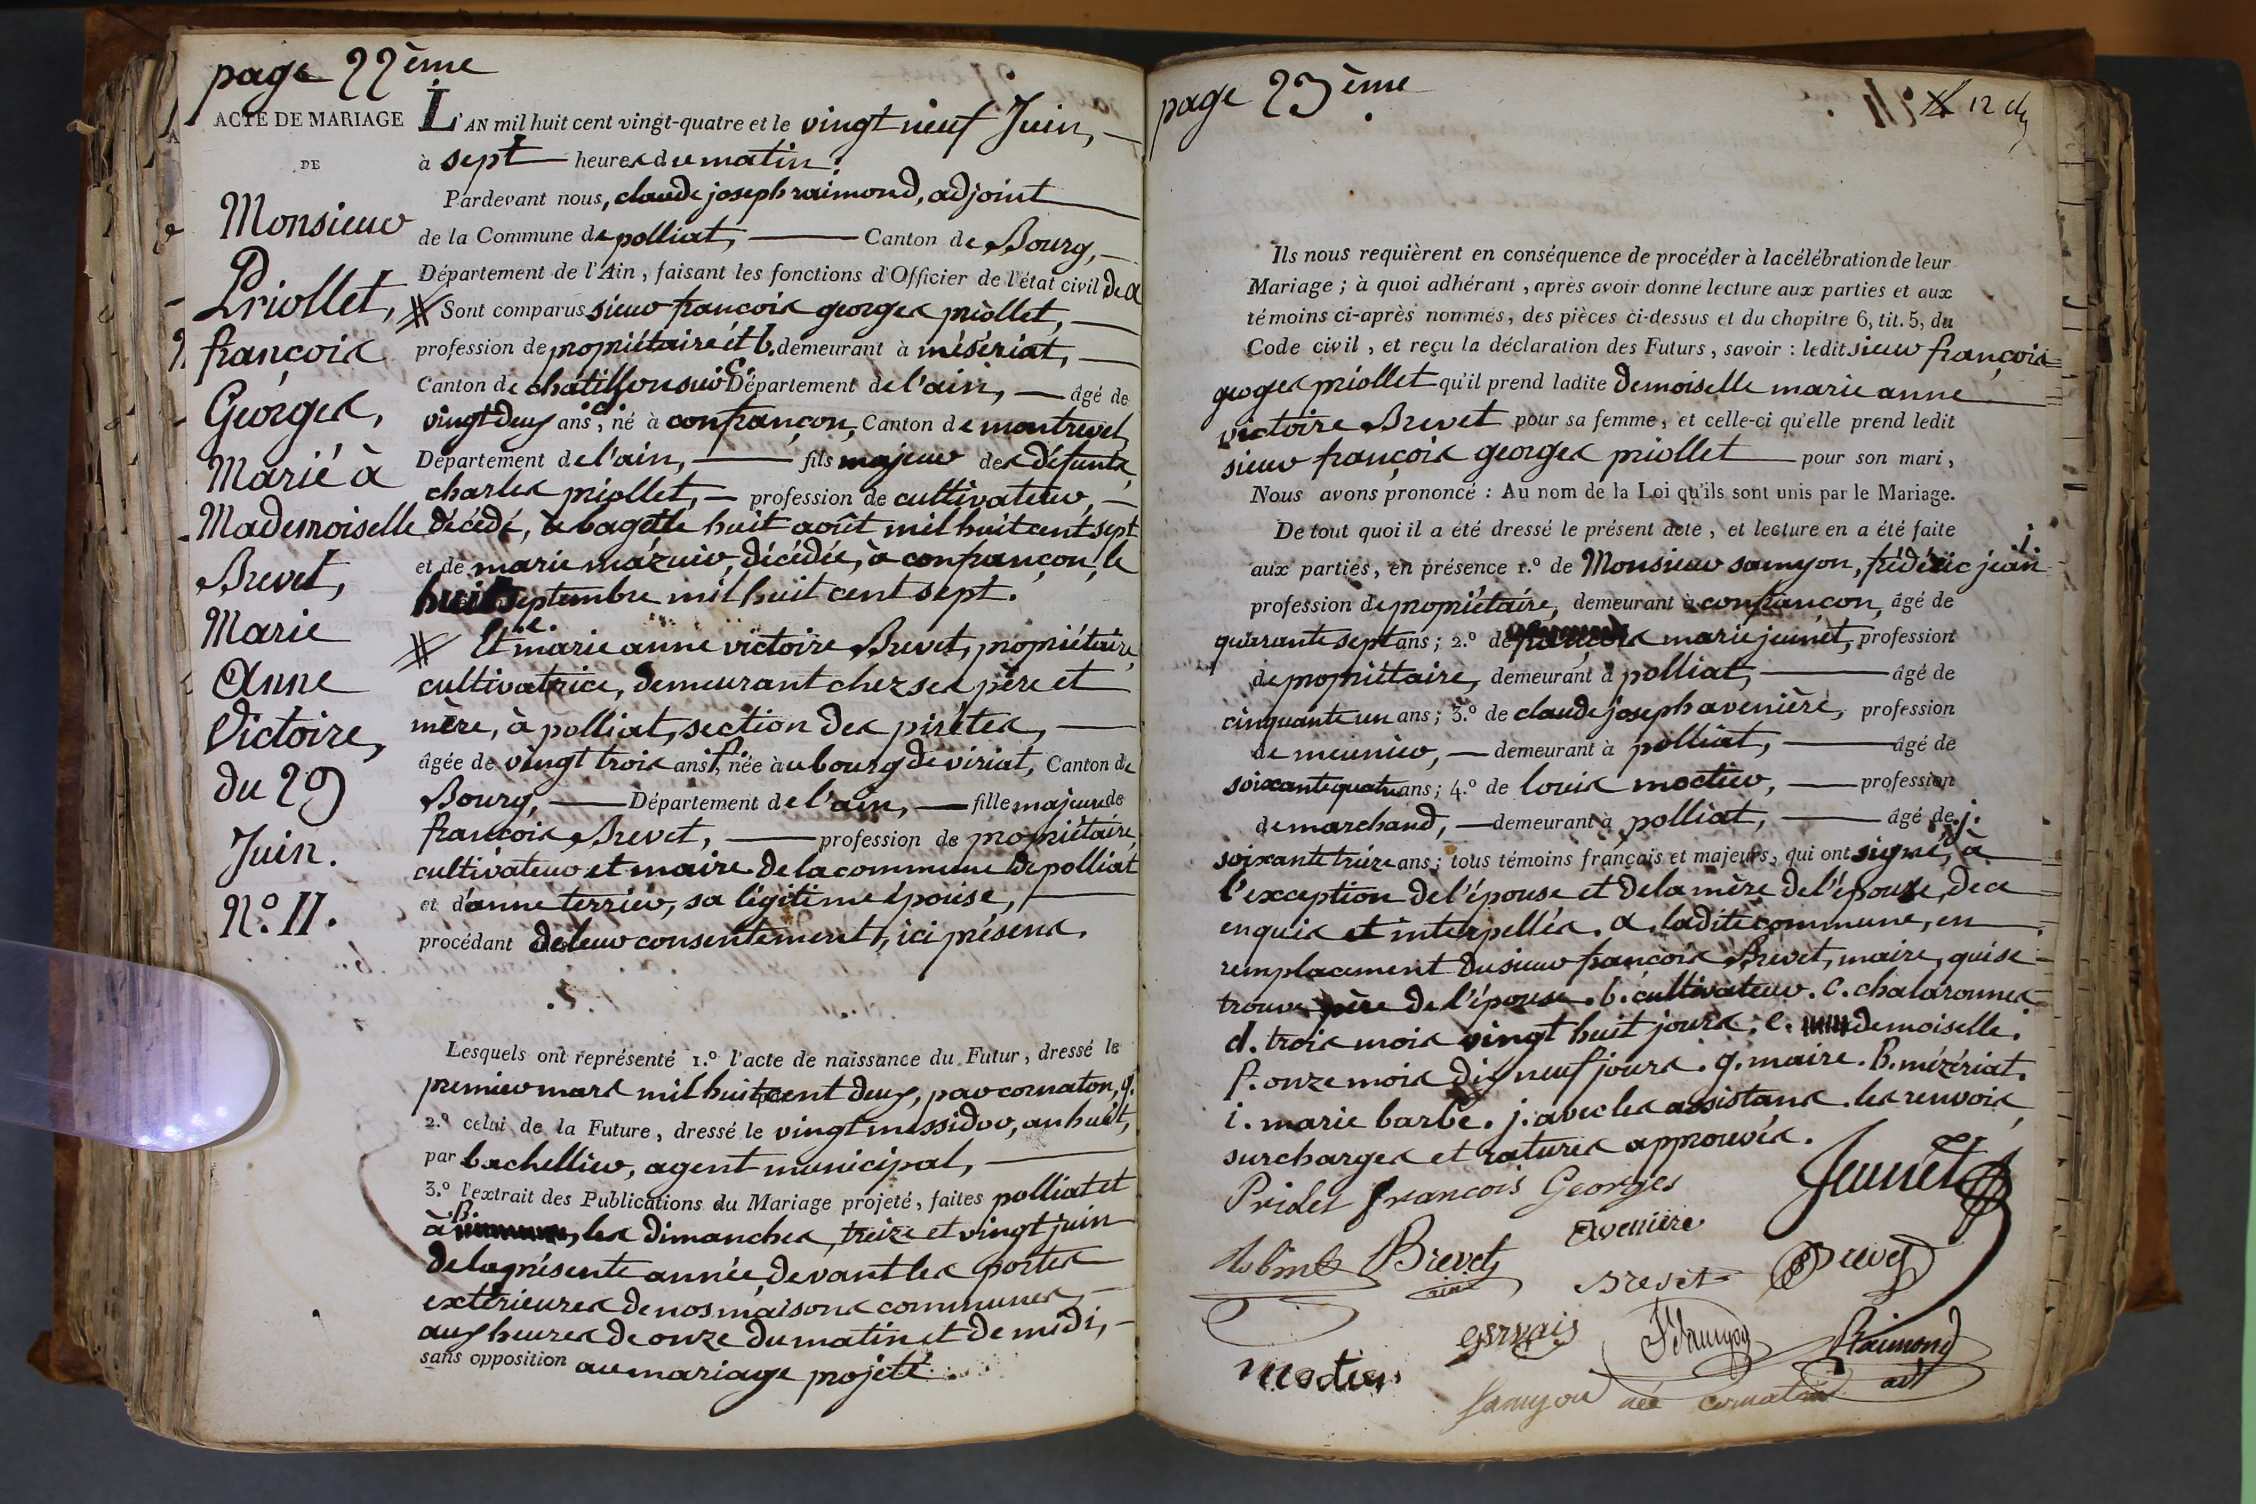 page 22ème
ACTE DE MARIAGE
DE
Monsieur
Priollet,
françois
Georges,
Marié à
Mademoiselle
Brevet,
Marie
Anne
Victoire,
du 29
Juin.
N.º 11.
L'AN mil huit cent vingt-quatre et le vingt neuf Juin,
à sept heures du matin.
Pardevant nous, claude joseph raimond, adjoint
de la Commune de polliat, Canton de Bourg,
Département de l'Ain, faisant les fonctions d'Officier de l'état civil de a
Sont comparus sieur françois georges priollet,
profession de propriétaire et b. demeurant à mésériat,
Canton de chatillon sur c. Département de l'ain, âgé de
vingt deux ans d., né à confrançon, Canton de montrevel,
Département de l'ain, fils majeur des défunts
charles priollet, profession de cultivateur,
décédé, à bagé le huit août mil huit cent sept
et de marie mazuir, décédée, à confrançon, le
huit septembre mil huit cent sept.
Et e. marie anne victoire Brevet, propriétaire,
cultivatrice, demeurant chez ses père et
mère, à polliat, section des pirètes,
âgée de vingt trois ans f, née au bourg de viriat, Canton de
Bourg, Département de l'ain, fille majeure de
françois Brevet, profession de propriétaire,
cultivateur et maire de la commune de polliat
et d'anne terrier, sa légitime épouse,
procédant de leur consentement, ici présens.
Lesquels ont représenté 1.º l'acte de naissance du Futur, dressé le
premier mars mil huit cent deux, par cornaton, g.
2.º celui de la Future, dressé le vingt messidor, an huit,
par bachellier, agent municipal,
3.º l'extrait des Publications du Mariage projeté, faites polliat et
à h. les dimanches, treize et vingt juin
de la présente année, devant les portes
extérieures de nos maisons communes,
aux heures de onze du matin et de midi,
sans opposition au mariage projeté.
page 23ème
12
Ils nous requièrent en conséquence de procéder à la célébration de leur
Mariage; à quoi adhérant, après avoir donné lecture aux parties et aux
témoins ci-après nommés, des pièces ci-dessus et du chapitre 6, tit. 5, du
Code civil, et reçu la déclaration des Futurs, savoir: ledit sieur françois
georges priollet qu'il prend ladite demoiselle marie anne
victoire Brevet pour sa femme, et celle-ci qu'elle prend ledit
sieur françois georges priollet pour son mari,
Nous avons prononcé: Au nom de la Loi qu'ils sont unis par le Mariage.
De tout quoi il a été dressé le présent acte, et lecture en a été faite
aux parties, en présence 1.º de Monsieur samyon, frédéric jean i.
profession de propriétaire, demeurant à confrançon, âgé de
quarante sept ans; 2.º de françois marie jeunet, profession
de propriétaire, demeurant à polliat, âgé de
cinquante un ans; 3.º de claude joseph avenière, profession
de meunier, demeurant à polliat, âgé de
soixante quatre ans; 4.º de louis moctier, profession
de marchand, demeurant à polliat, âgé de
soixante treize ans; tous témoins français et majeurs, qui ont signé j., à
l'exception de l'épouse et de la mère de l'épouse, de ce
enquis et interpellés. a. ladite commune, en
remplacement du sieur françois Brevet, maire, qui se
trouve père de l'épouse. b. cultivateur. c. chalaronnes
d. trois mois vingt huit jours. e. demoiselle.
f. onze mois dix neuf jours. g. maire. h. mézériat.
i. marie barbe. j. avec les assistans. les renvois,
surcharges et ratures approuvés.
Priolet francois Georges
Jeunet
Avenière
Brevet
Brevet
Brevet
gervais
Raimond
adj
moctier
samyon née cornaton